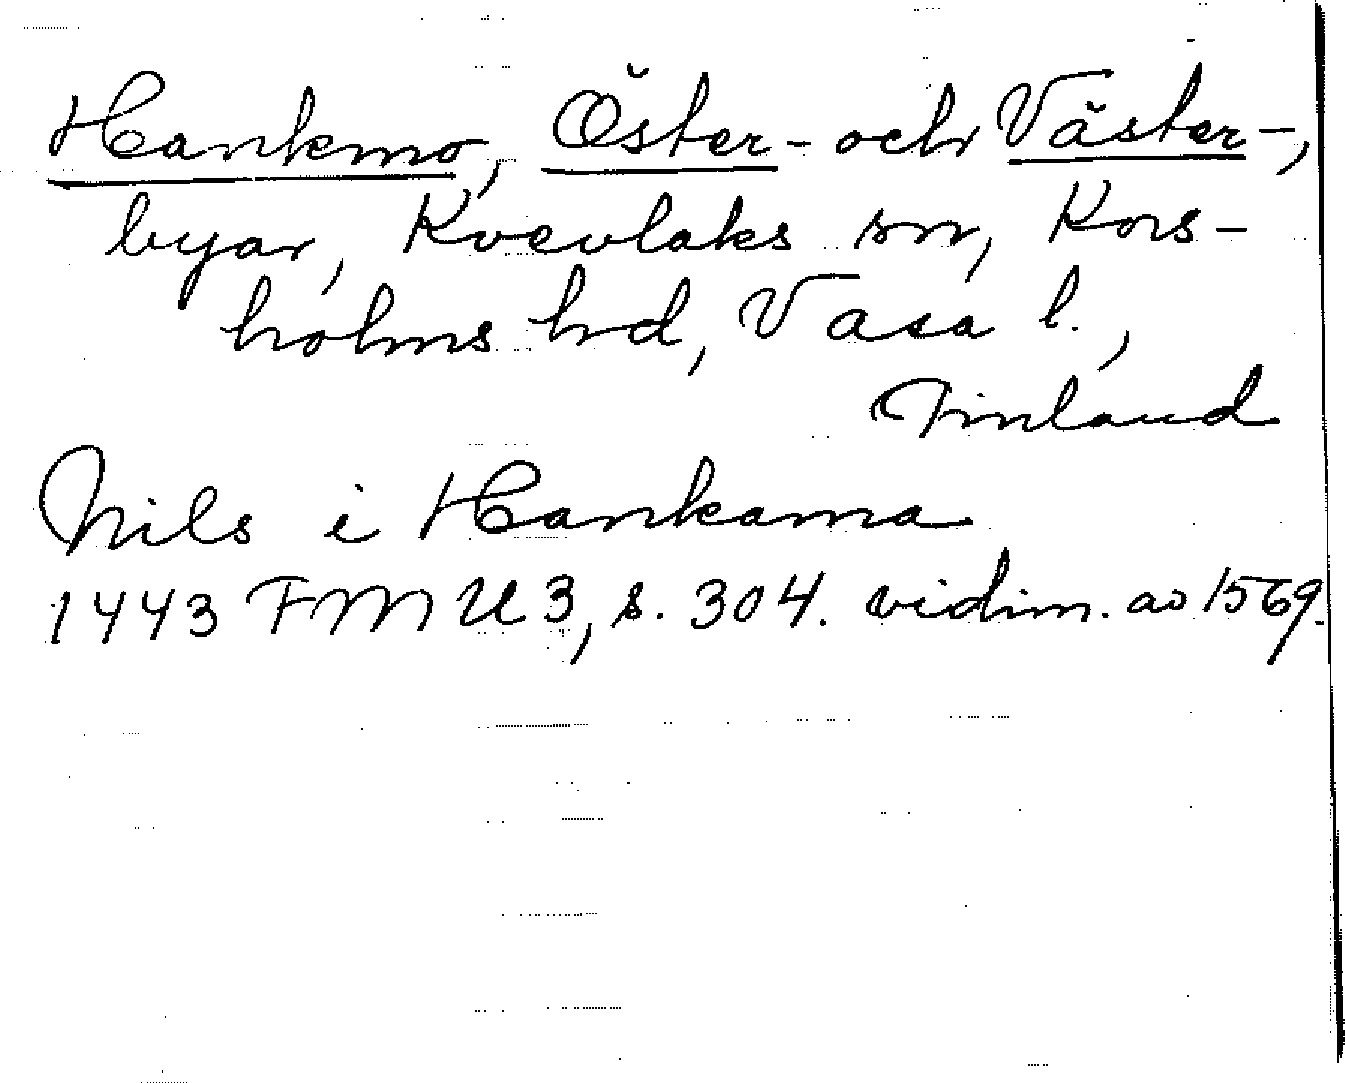 Hankmo, Öster- och Väster-,
byar, Kvevlaks sn, Kors-
holms hd, Vasa l.,
Finland
Nils i Hankama
1443 FMU 3, s. 304. vidim. av 1569.